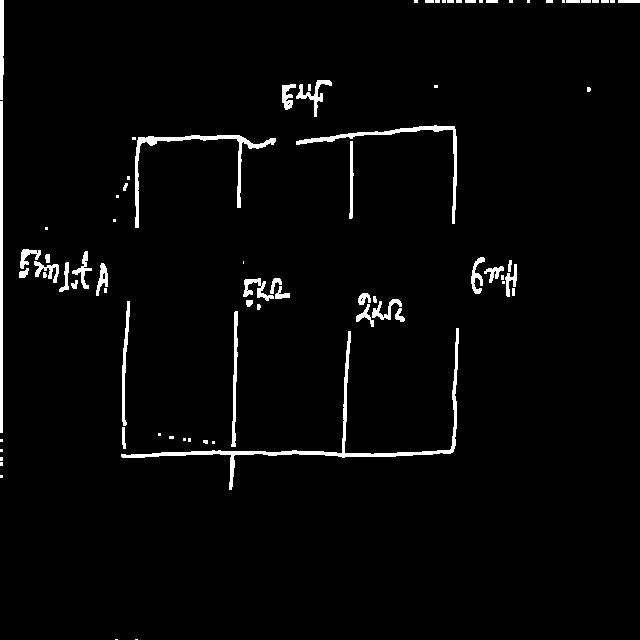 5μF
5sin1.t A
5kΩ
2kΩ
6mH